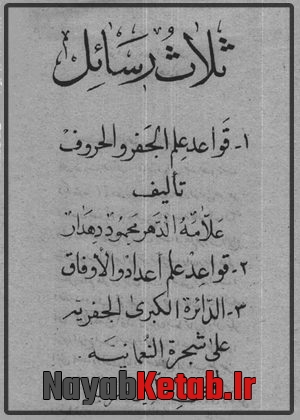 ثلاث رسائل
۱- قواعد علم الجفر والحروف
تأليف
علامه الدهر محمود دهدار
۲- قواعد علم اعداد والأوفاق
۳- الدائرة الكبرى الجفرية
على شجرة النعمانية
NayabKetab.Ir